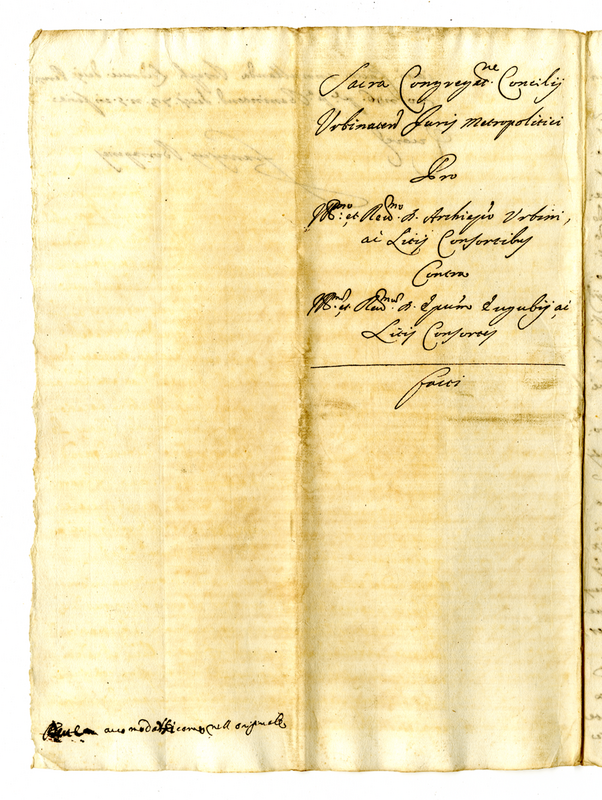 Sacra Congregat.ne Concilij
Urbinaten Juris Metropolitici
Pro
Ill.mo et Rev.mo D. Archiep̃o Urbini,
ac Litis Consortibus
Contra
Ill.mum et Rev.mum D. Ep̃um Eugubij, ac
Litis Consortes
Facti
accomodatti come nell originale